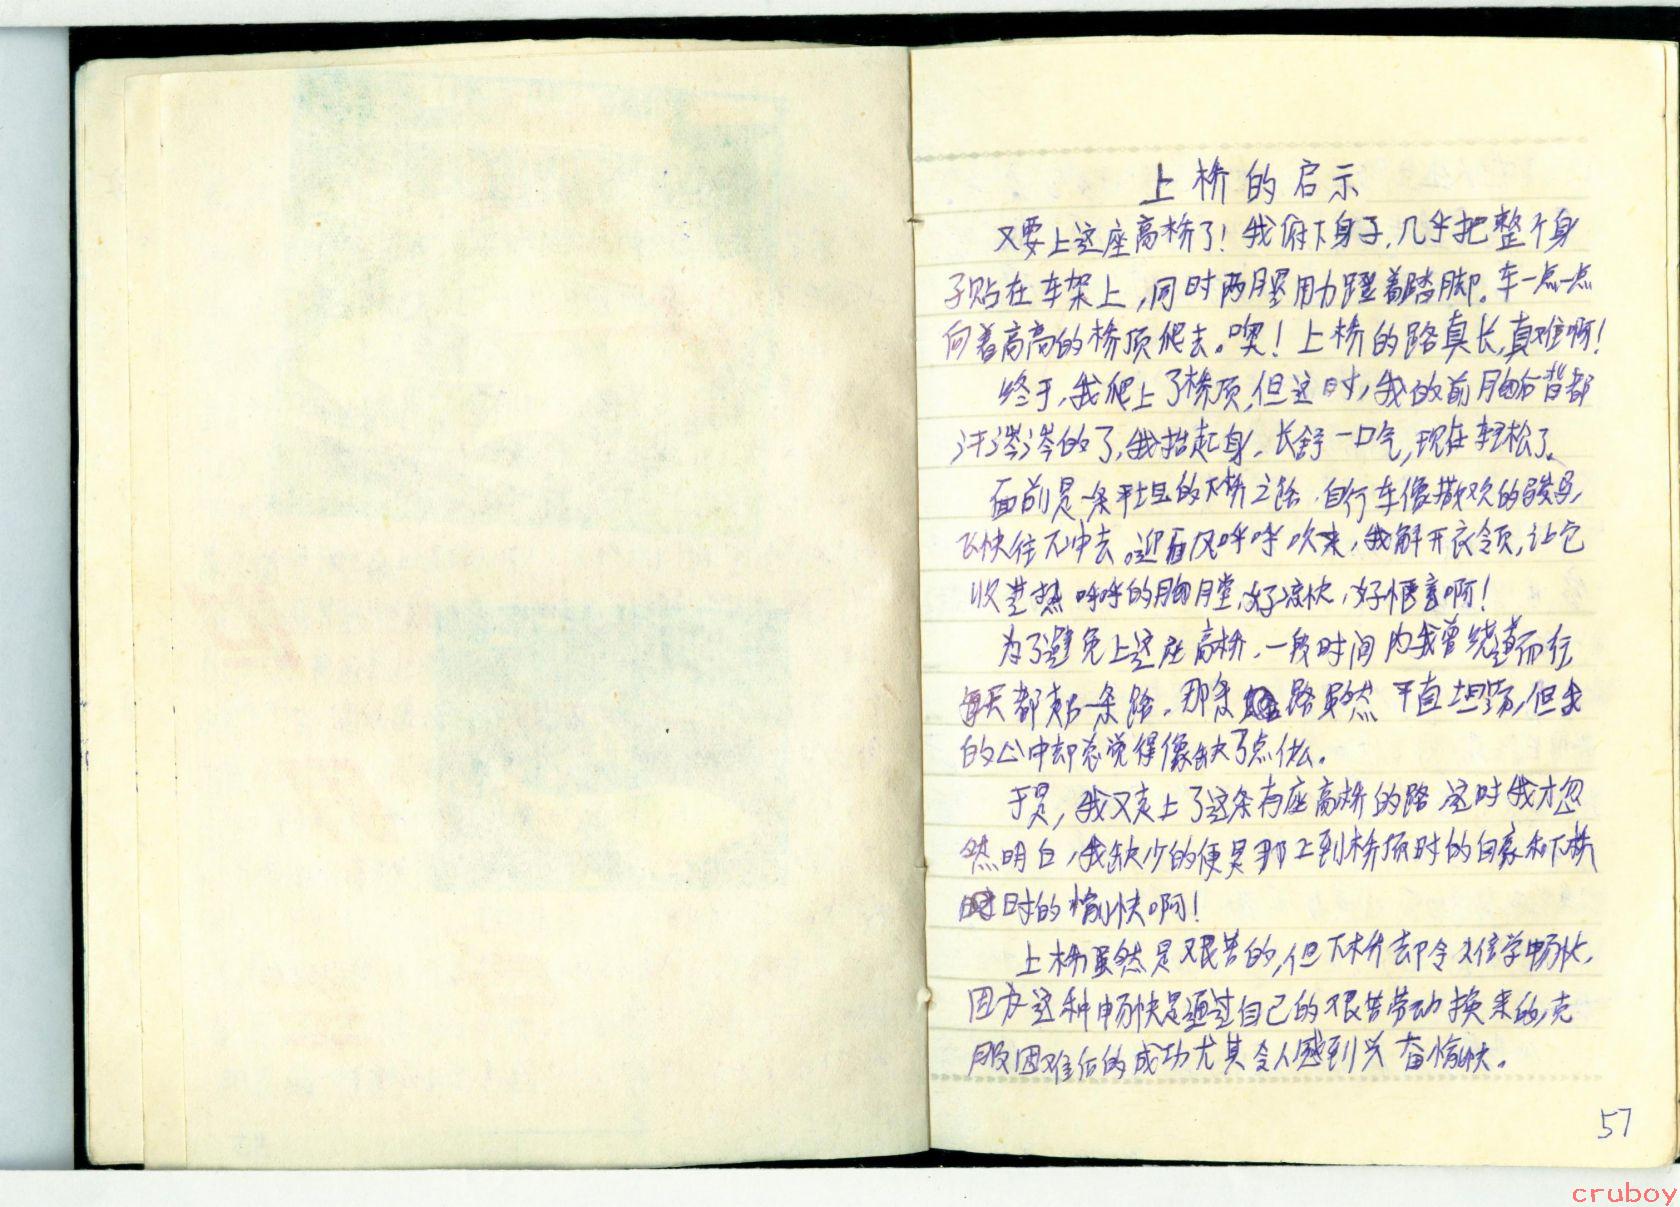 上桥的启示
又要上这座高桥了！我俯下身子，几乎把整个身
子贴在车架上，同时两腿用力蹬着踏脚。车一点一点
向着高高的桥顶爬去。噢！上桥的路真长，真难啊！
终于，我爬上了桥顶，但这时，我的前胸后背都
汗涔涔的了，我抬起身，长舒一口气，现在轻松了。
面前是一条平坦的下桥之路，自行车像撒欢的骏马，
飞快往下冲去。迎面风呼呼吹来，我解开衣领，让它
吹进热呼呼的胸膛，好凉快，好惬意啊！
为了避免上这座高桥，一段时间内我曾绕道而行
每天都走另一条路，那条路虽然平直坦荡，但我
的心中却总觉得像缺了点什么。
于是，我又走上了这条有座高桥的路 这时我才忽
然明白，我缺少的便是那上到桥顶时的自豪和下桥
时的愉快啊！
上桥虽然是艰苦的，但下桥却令人倍觉畅快，
因为这种畅快是通过自己的艰苦劳动换来的，克
服困难后的成功尤其令人感到兴奋愉快。
57
cruboy